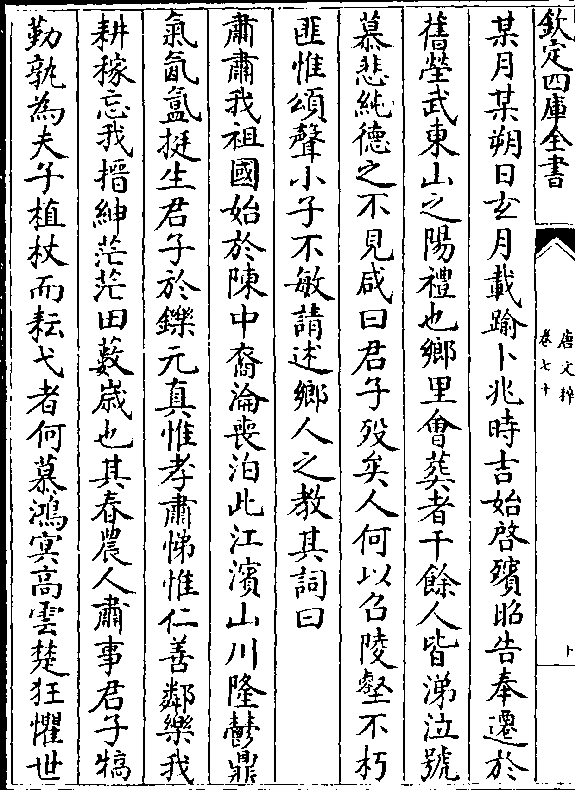 欽定四庫全書
唐文粹
卷七十
某月某朔日玄月載踰卜兆時吉始啓殯昭告奉遷於
舊塋武東山之陽禮也鄉里會葬者千餘人皆涕泣號
慕悲純德之不見咸曰君子殁矣人何以名陵壑不朽
匪惟頌聲小子不敏請述鄉人之教其詞曰
肅肅我祖國始於陳中裔淪喪泊此江濱山川隆鬱鼎
氣氤氳挺生君子於鑠元真惟孝肅悌惟仁善鄰樂我
耕稼忘我搢紳茫茫田藪歲也其春農人肅事君子犒
勤孰為夫子植杖而耘弋者何慕鴻㝠高雲楚狂懼世